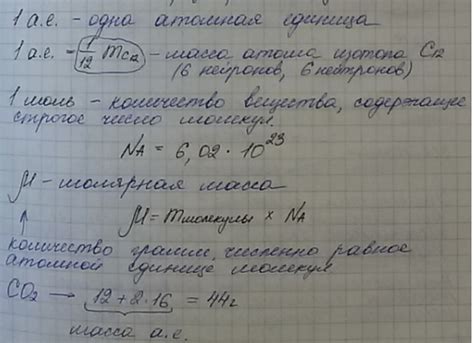 1 а.е. - одна атомная единица
1 а.е. = 1/12 m C12 - масса атома изотопа C12
(6 нейронов, 6 нейтронов)
1 моль - количество вещества, содержащее
строгое число молекул.
NA = 6,02 · 10^23
μ - молярная масса
μ = m молекулы × NA
количество грамм, численно равное
атомной единице молекул
CO2 → 12 + 2 · 16 = 44г
масса а.е.